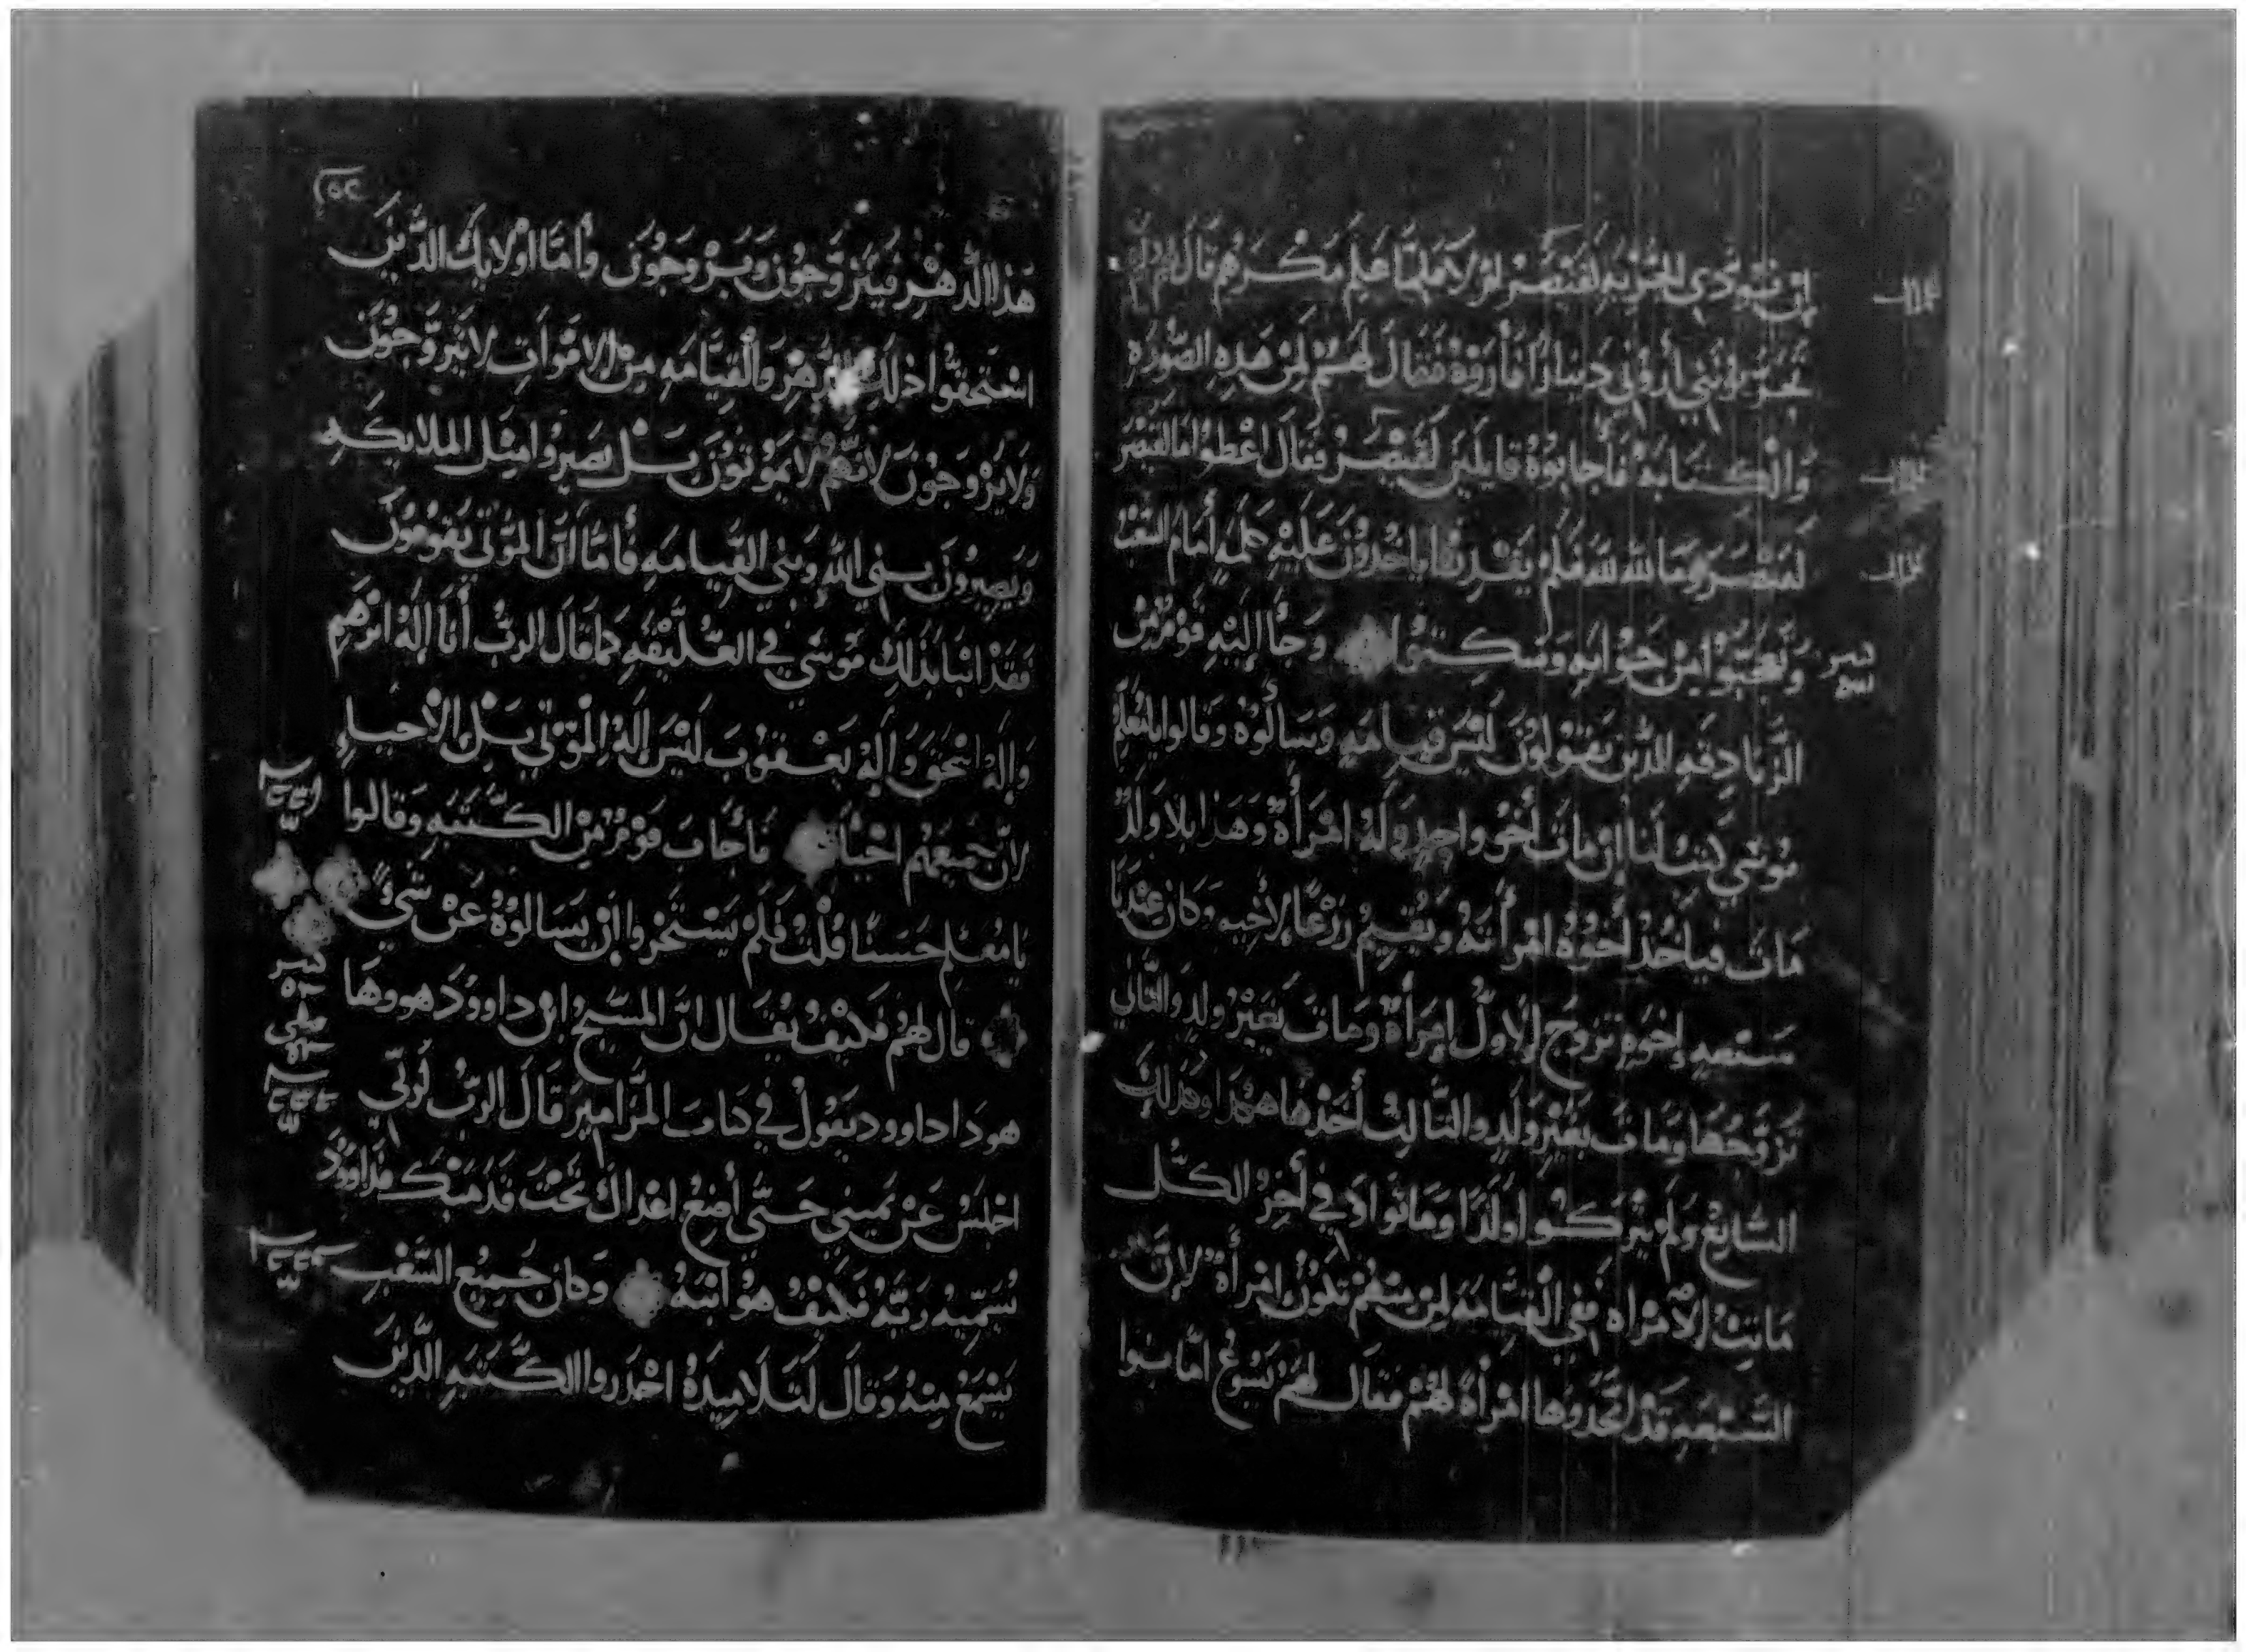 ان نودي الجزيه لقيصر او لا فلما علم مكرهم قال لهم لم
تجربونني أروني دينارًا فأروهُ فقال لهم لمن هذه الصوره
والكتابة فأجابوهُ قايلين لقيصر فقال اعطوا ما لقيصر
لقيصر وما لله لله فلم يقدروا ياخدون عليه كلمه أمام الشعب
وتعجبوا من جوابه وسكتوا وجاا إليه قوم من
الزنادقه الذين يقولون ليس قيامه وسالوه وقالوا يامعلم
موسي كتب لنا إن مات أخو واحد وله امرأة وهذا بلا ولد
مات فياخذ أخوه امرأته ويقيم زرعًا لأخيه وكان عندنا
سبعه إخوه تزوج الاول امرأة ومات بغير ولد والتاني
تزوجها ومات بغير ولد والتالت أخدها هكدا وكذلك
السابع ولم يتركوا اولدًا وماتوا وفي أخر الكل
ماتت الامراه ففي القيامه لمن منهم تكون امرأة لان
السبعه قد اتخدوها امرأة لهم فقال لهم يسوع امّا بنوا
هذا الدهر فيتزوجون ويزوجون وأمّا اولايك الدين
استحقوا ذلك الدهر والقيامه من الاموات لا يتزوجون
ولا يزوجون لانهم لا يموتون بل يصيروا مثل الملايكه
ويصيرون بني الله وبني القيامه فأمّا ان الموتي يقومون
فقد انبا بذلك موسي في العليقه كما قال الرب أنا إله ابرهيم
وإله اسحق وإله يعقوب ليس اله الموتي بل الأحياء
لان جميعهم احياً فأجاب قوم من الكتبه وقالوا
يا معلم حسنًا قلت فلم يستجروا ان يسالوه عن شيء
قال لهم فكيف يقال ان المسيح ابن داوود هو وها
هودا داوود يقول في كتاب المزامير قال الرب لربي
اجلس عن يميني حتي أضع اعداك تحت قدميك فداوود
يسميه ربه فكيف هو ابنه وكان جميع الشعب
يسمع منه وقال لتلاميده احدروا الكتبه الدين